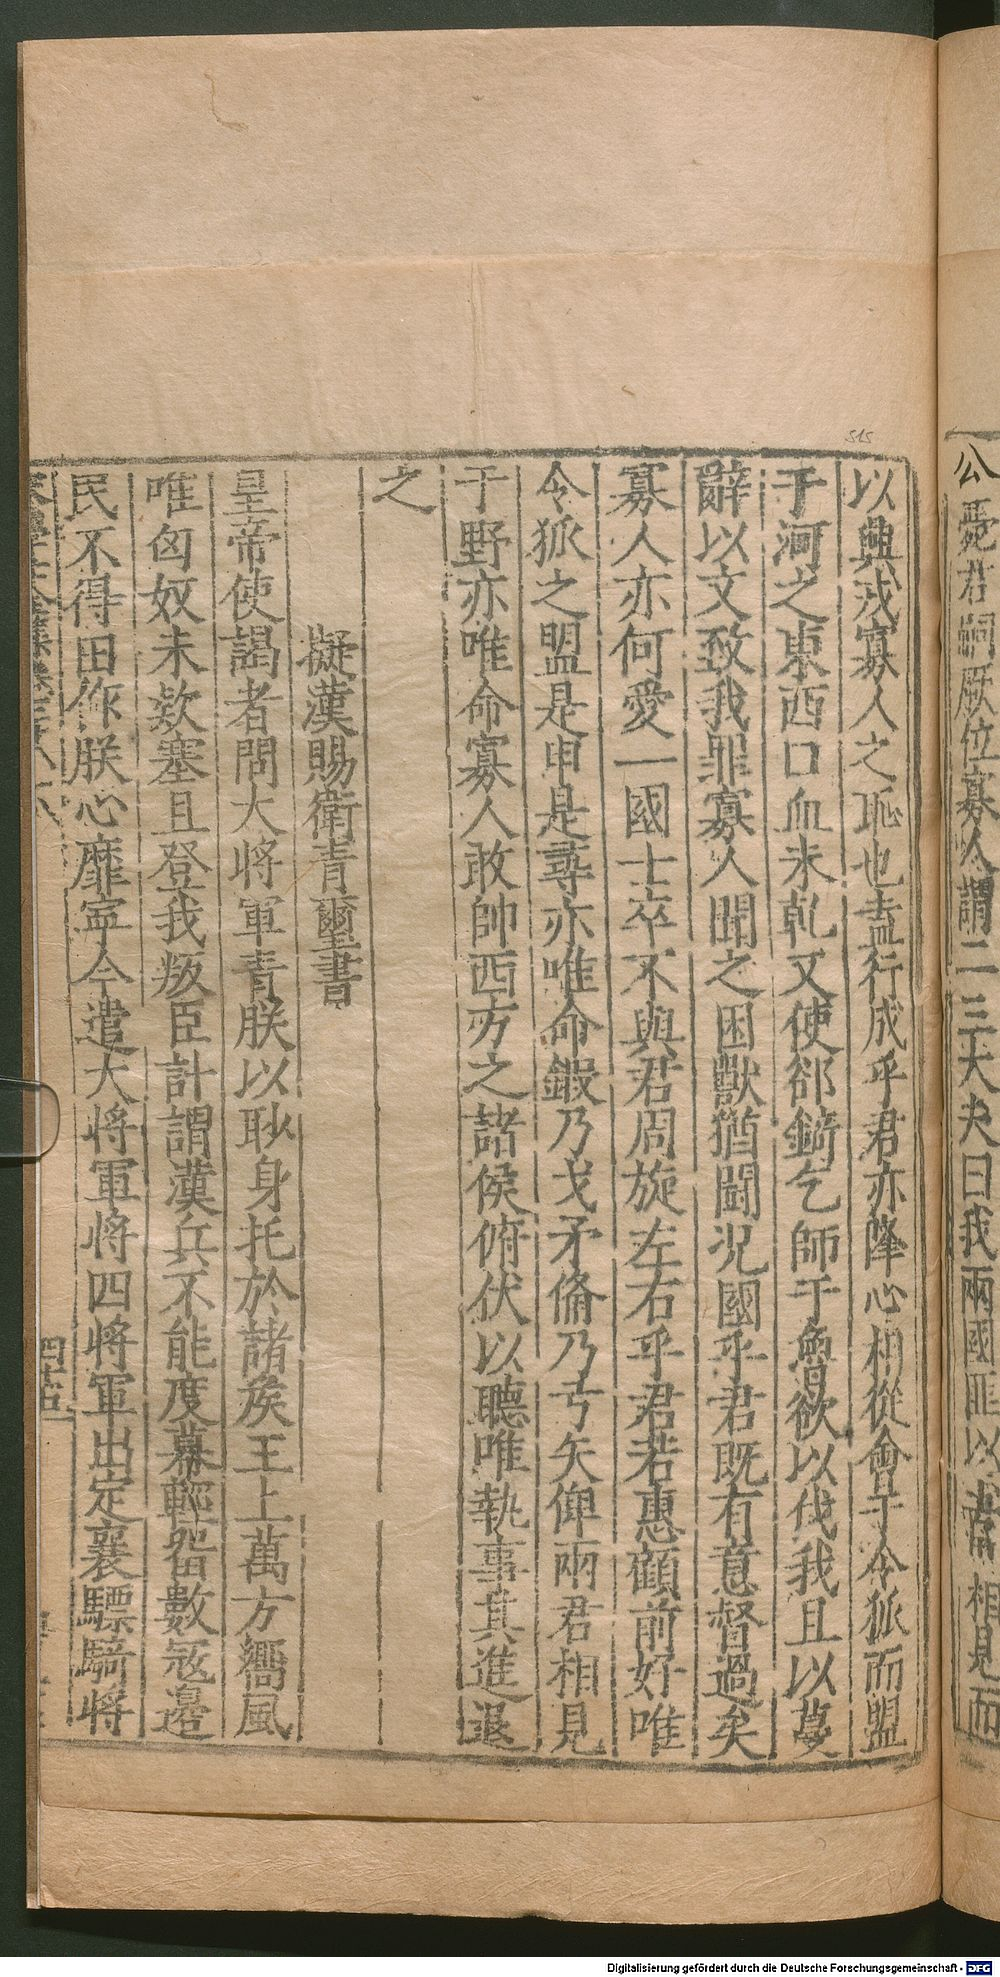 公薨君嗣厥位寡人謂二三大夫曰我兩國匪以常相見而
以興戎寡人之恥也盍行成乎君亦降心相從會于令狐而盟
于河之東西口血未乾又使郤錡乞師于魯欲以伐我且以蔓
辭以文致我罪寡人聞之困獸猶鬪況國乎君既有意督過矣
寡人亦何愛一國士卒不與君周旋左右乎君若惠顧前好唯
令狐之盟是申是尋亦唯命鍛乃戈矛脩乃弓矢俾兩君相見
于野亦唯命寡人敢帥西方之諸侯俯伏以聽唯執事其進退
之
擬漢賜衛青璽書
皇帝使謁者問大將軍青朕以耿身托於諸矦王上萬方嚮風
唯匈奴未欵塞且登我叛臣計謂漢兵不能度幕輕畱數寇邉
民不得田作朕心靡寧今遣大將軍將四將軍出定襄驃騎將
四十五
Digitalisierung gefördert durch die Deutsche Forschungsgemeinschaft - DFG